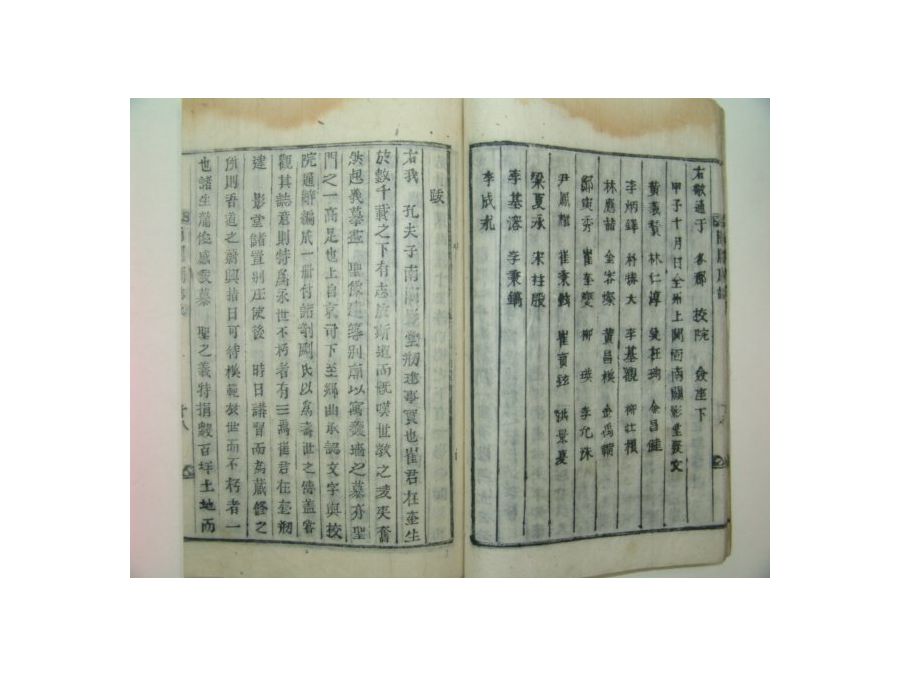 右敬通于 各郡 校院 僉座下
甲子十月日全州上關面南關影堂發文
黃義贊 林仁淳 吳在珣 金昌鍾
李炳鋒 朴勝大 李基觀 柳壯根
林應喆 金容燦 黃昌模 金禹
鄭寅秀 崔奎燮 柳瑛 李允洙
尹鳳 崔秉 崔寶鉉 洪景夏
梁夏永 宋柱殷
李基溶 李秉鎬
李成
跋
右我 孔夫子南關影堂刱建事實也崔君在奎生
於數千載之下有志於斯道而慨嘆世敎之凌夷奮
然起義摹 聖像建 別廟以寓羹墻之慕亦聖
門之一高是也上自京司下至鄕曲承認文字與校
院通辭編成一冊付諸剞劂氏以爲壽世之傳盖吾
觀其誌意則特爲永世不朽者有三焉崔君在奎刱
建 影堂諸置別庄陂後 時日講習而爲藏修之
所則吾道之蔚興指日可待模範於世而不朽者一
也諸生 感 慕 聖之義特捐 百坪土地而
十八